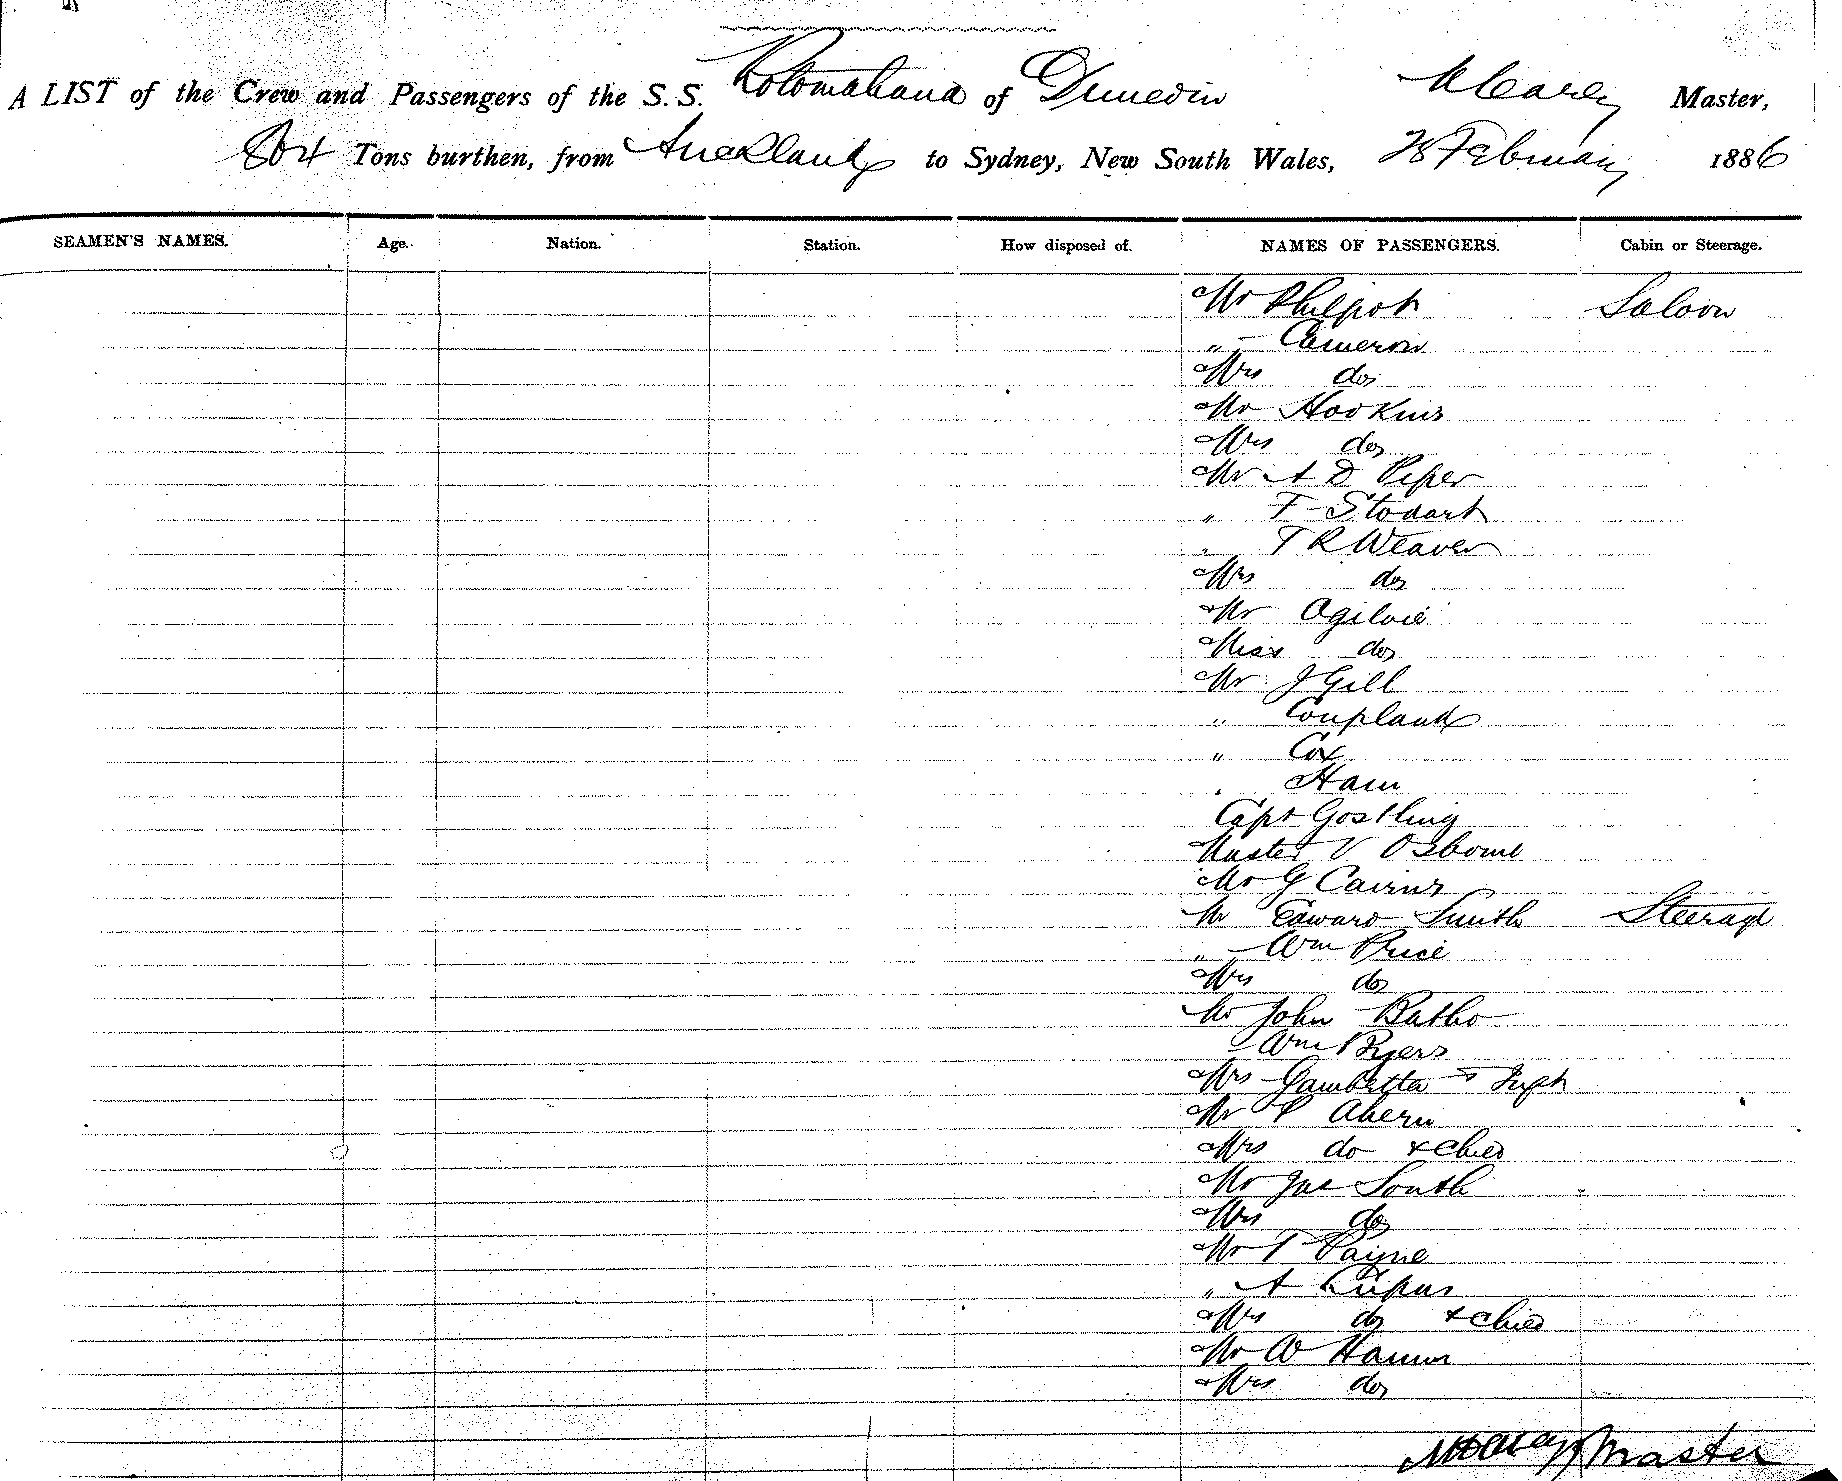 A LIST of the Crew and Passengers of the S.S. Rotomahana of Dunedin M Carey Master,
864 Tons burthen, from Auckland to Sydney, New South Wales, 28 February 1886
SEAMEN'S NAMES. Age. Nation. Station. How disposed of. NAMES OF PASSENGERS. Cabin or Steerage.
Mr Philpot Saloon
" Cameron
Mrs do
Mr Hookins
Mrs do
Mr A D Piper
" F Stodart
" T R Weaver
Mrs do
Mr Ogilvie
Miss do
Mr J Gill
" Coupland
" Cox
" Ham
Capt Gostling
Master V Osborne
Mr G Cairns
Mr Edward Smith Steerage
" Wm Price
Mrs do
Mr John Batho
" Wm Byers
Mrs Gambetta & Inft
Mr P Ahern
Mrs do & child
Mr Jas South
Mrs do
Mr T Payne
" A
Mrs do & child
Mr W Hamm
Mrs do
Carey Master